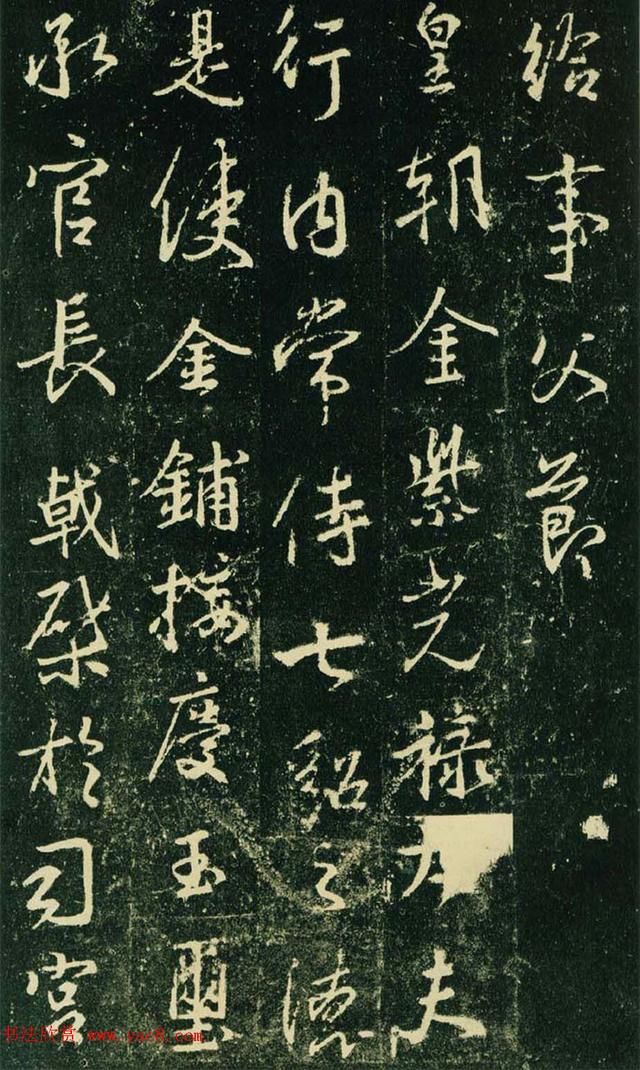 給事父節
皇朝金紫光祿大夫
行內常侍七貂之德
是使金鋪接慶玉璽
承官長戟棨於司宮
书法欣赏 www.yac8.com